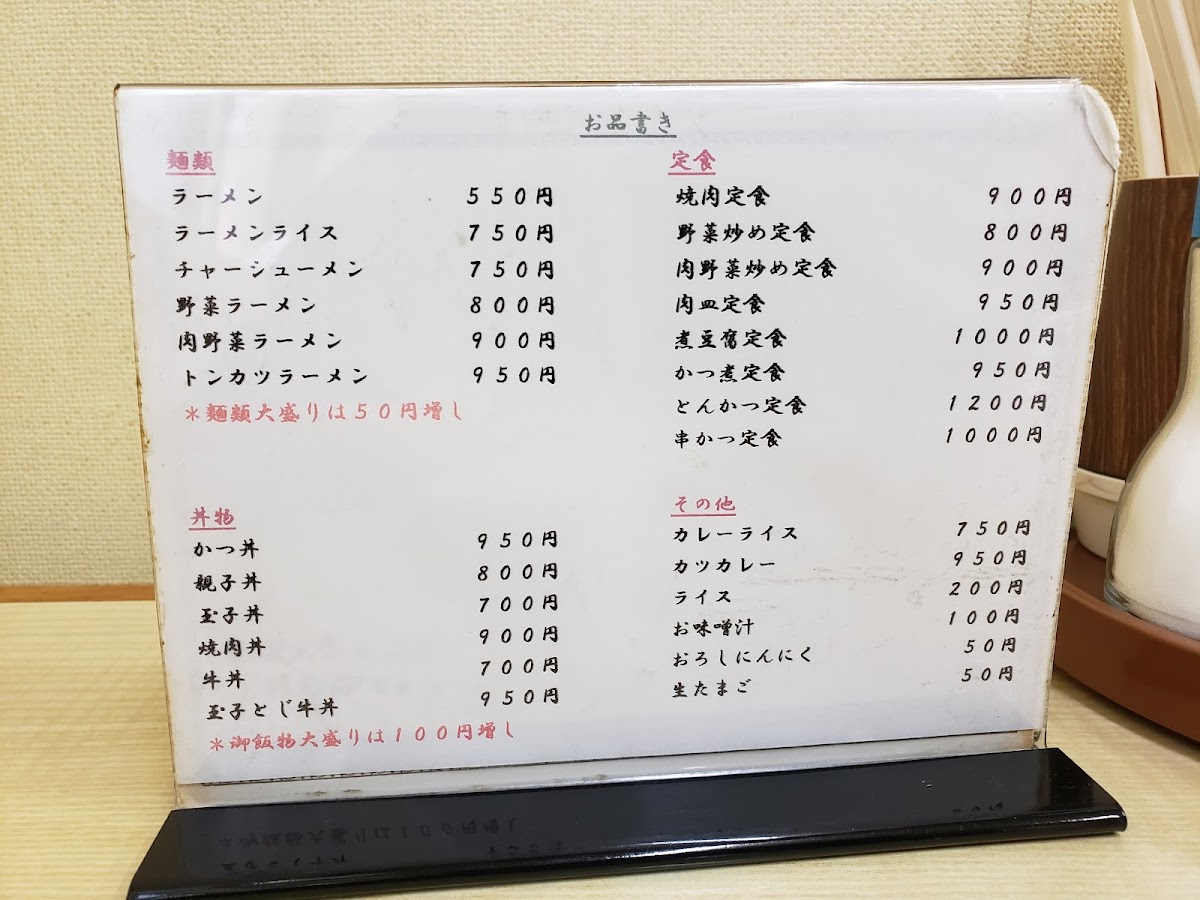 お品書き
麺類
ラーメン 550円
ラーメンライス 750円
チャーシューメン 750円
野菜ラーメン 800円
肉野菜ラーメン 900円
トンカツラーメン 950円
＊麺類大盛りは50円増し
丼物
かつ丼 950円
親子丼 800円
玉子丼 700円
焼肉丼 900円
牛丼 700円
玉子とじ牛丼 950円
＊御飯物大盛りは100円増し
定食
焼肉定食 900円
野菜炒め定食 800円
肉野菜炒め定食 900円
肉皿定食 950円
煮豆腐定食 1000円
かつ煮定食 950円
とんかつ定食 1200円
串かつ定食 1000円
その他
カレーライス 750円
カツカレー 950円
ライス 200円
お味噌汁 100円
おろしにんにく 50円
生たまご 50円